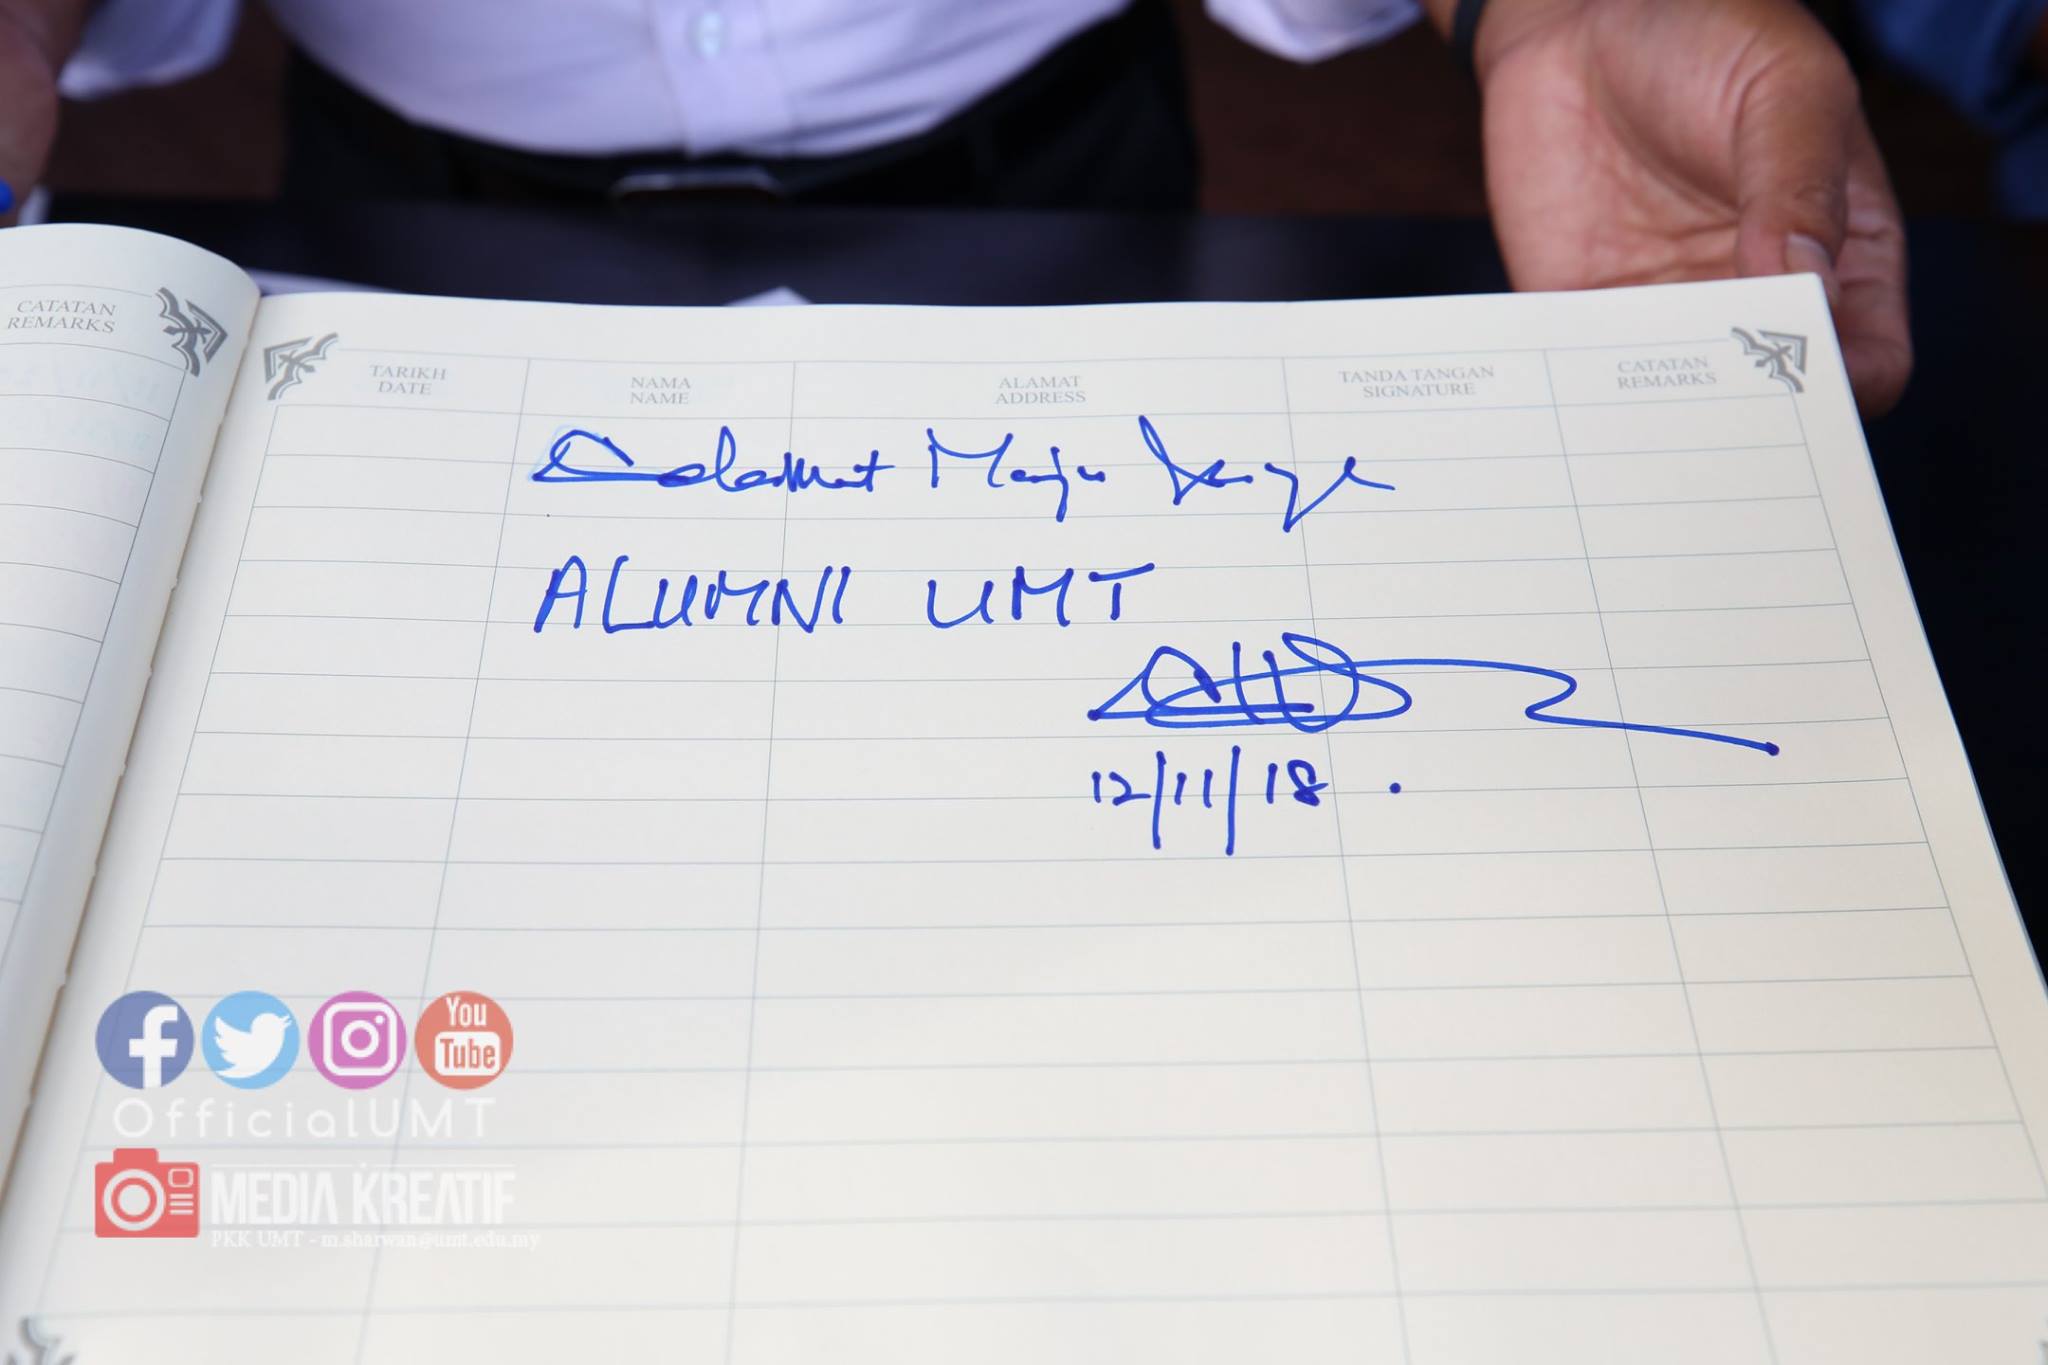 CATATAN
REMARKS
TARIKH
DATE
NAMA
NAME
ALAMAT
ADDRESS
TANDA TANGAN
SIGNATURE
CATATAN
REMARKS
Selamat Maju Jaya
ALUMNI UMT
12/11/18 .
You
Tube
OfficialUMT
MEDIA KREATIF
PKK UMT - m.sharwan@umt.edu.my